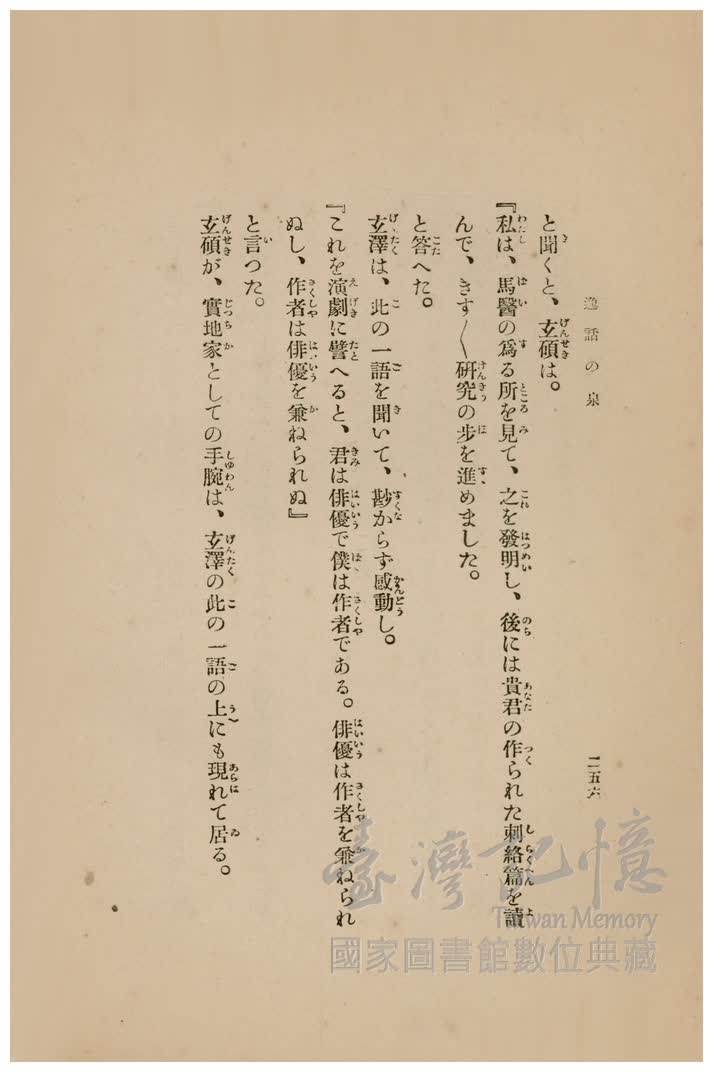 逸話の泉
二五六
と聞くと、玄碩は。
『私は、馬醫の爲る所を見て、之を發明し、後には貴君の作られた刺絡篇を讀
んで、きす〳〵研究の步を進めました。
と答へた。
玄澤は、此の一語を聞いて、尠からず感動し。
『これを演劇に譬へると、君は俳優で僕は作者である。俳優は作者を兼ねられ
ぬし、作者は俳優を兼ねられぬ』
と言つた。
玄碩が、實地家としての手腕は、玄澤の此の一語の上にも現れて居る。
臺灣記憶
Taiwan Memory
國家圖書館數位典藏